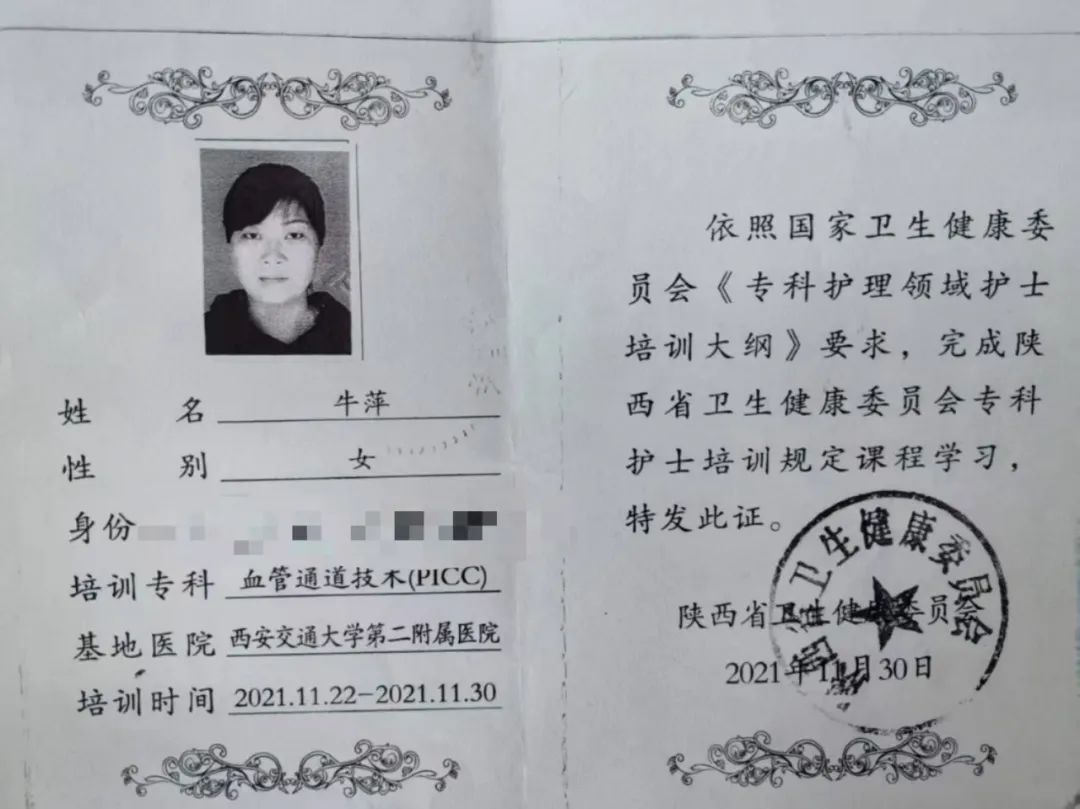 姓名 牛萍
性别 女
身份
培训专科 血管通道技术(PICC)
基地医院 西安交通大学第二附属医院
培训时间 2021.11.22-2021.11.30
依照国家卫生健康委
员会《专科护理领域护士
培训大纲》要求，完成陕
西省卫生健康委员会专科
护士培训规定课程学习，
特发此证。
陕西省卫生健康委员会
2021年11月30日
陕西省卫生健康委员会